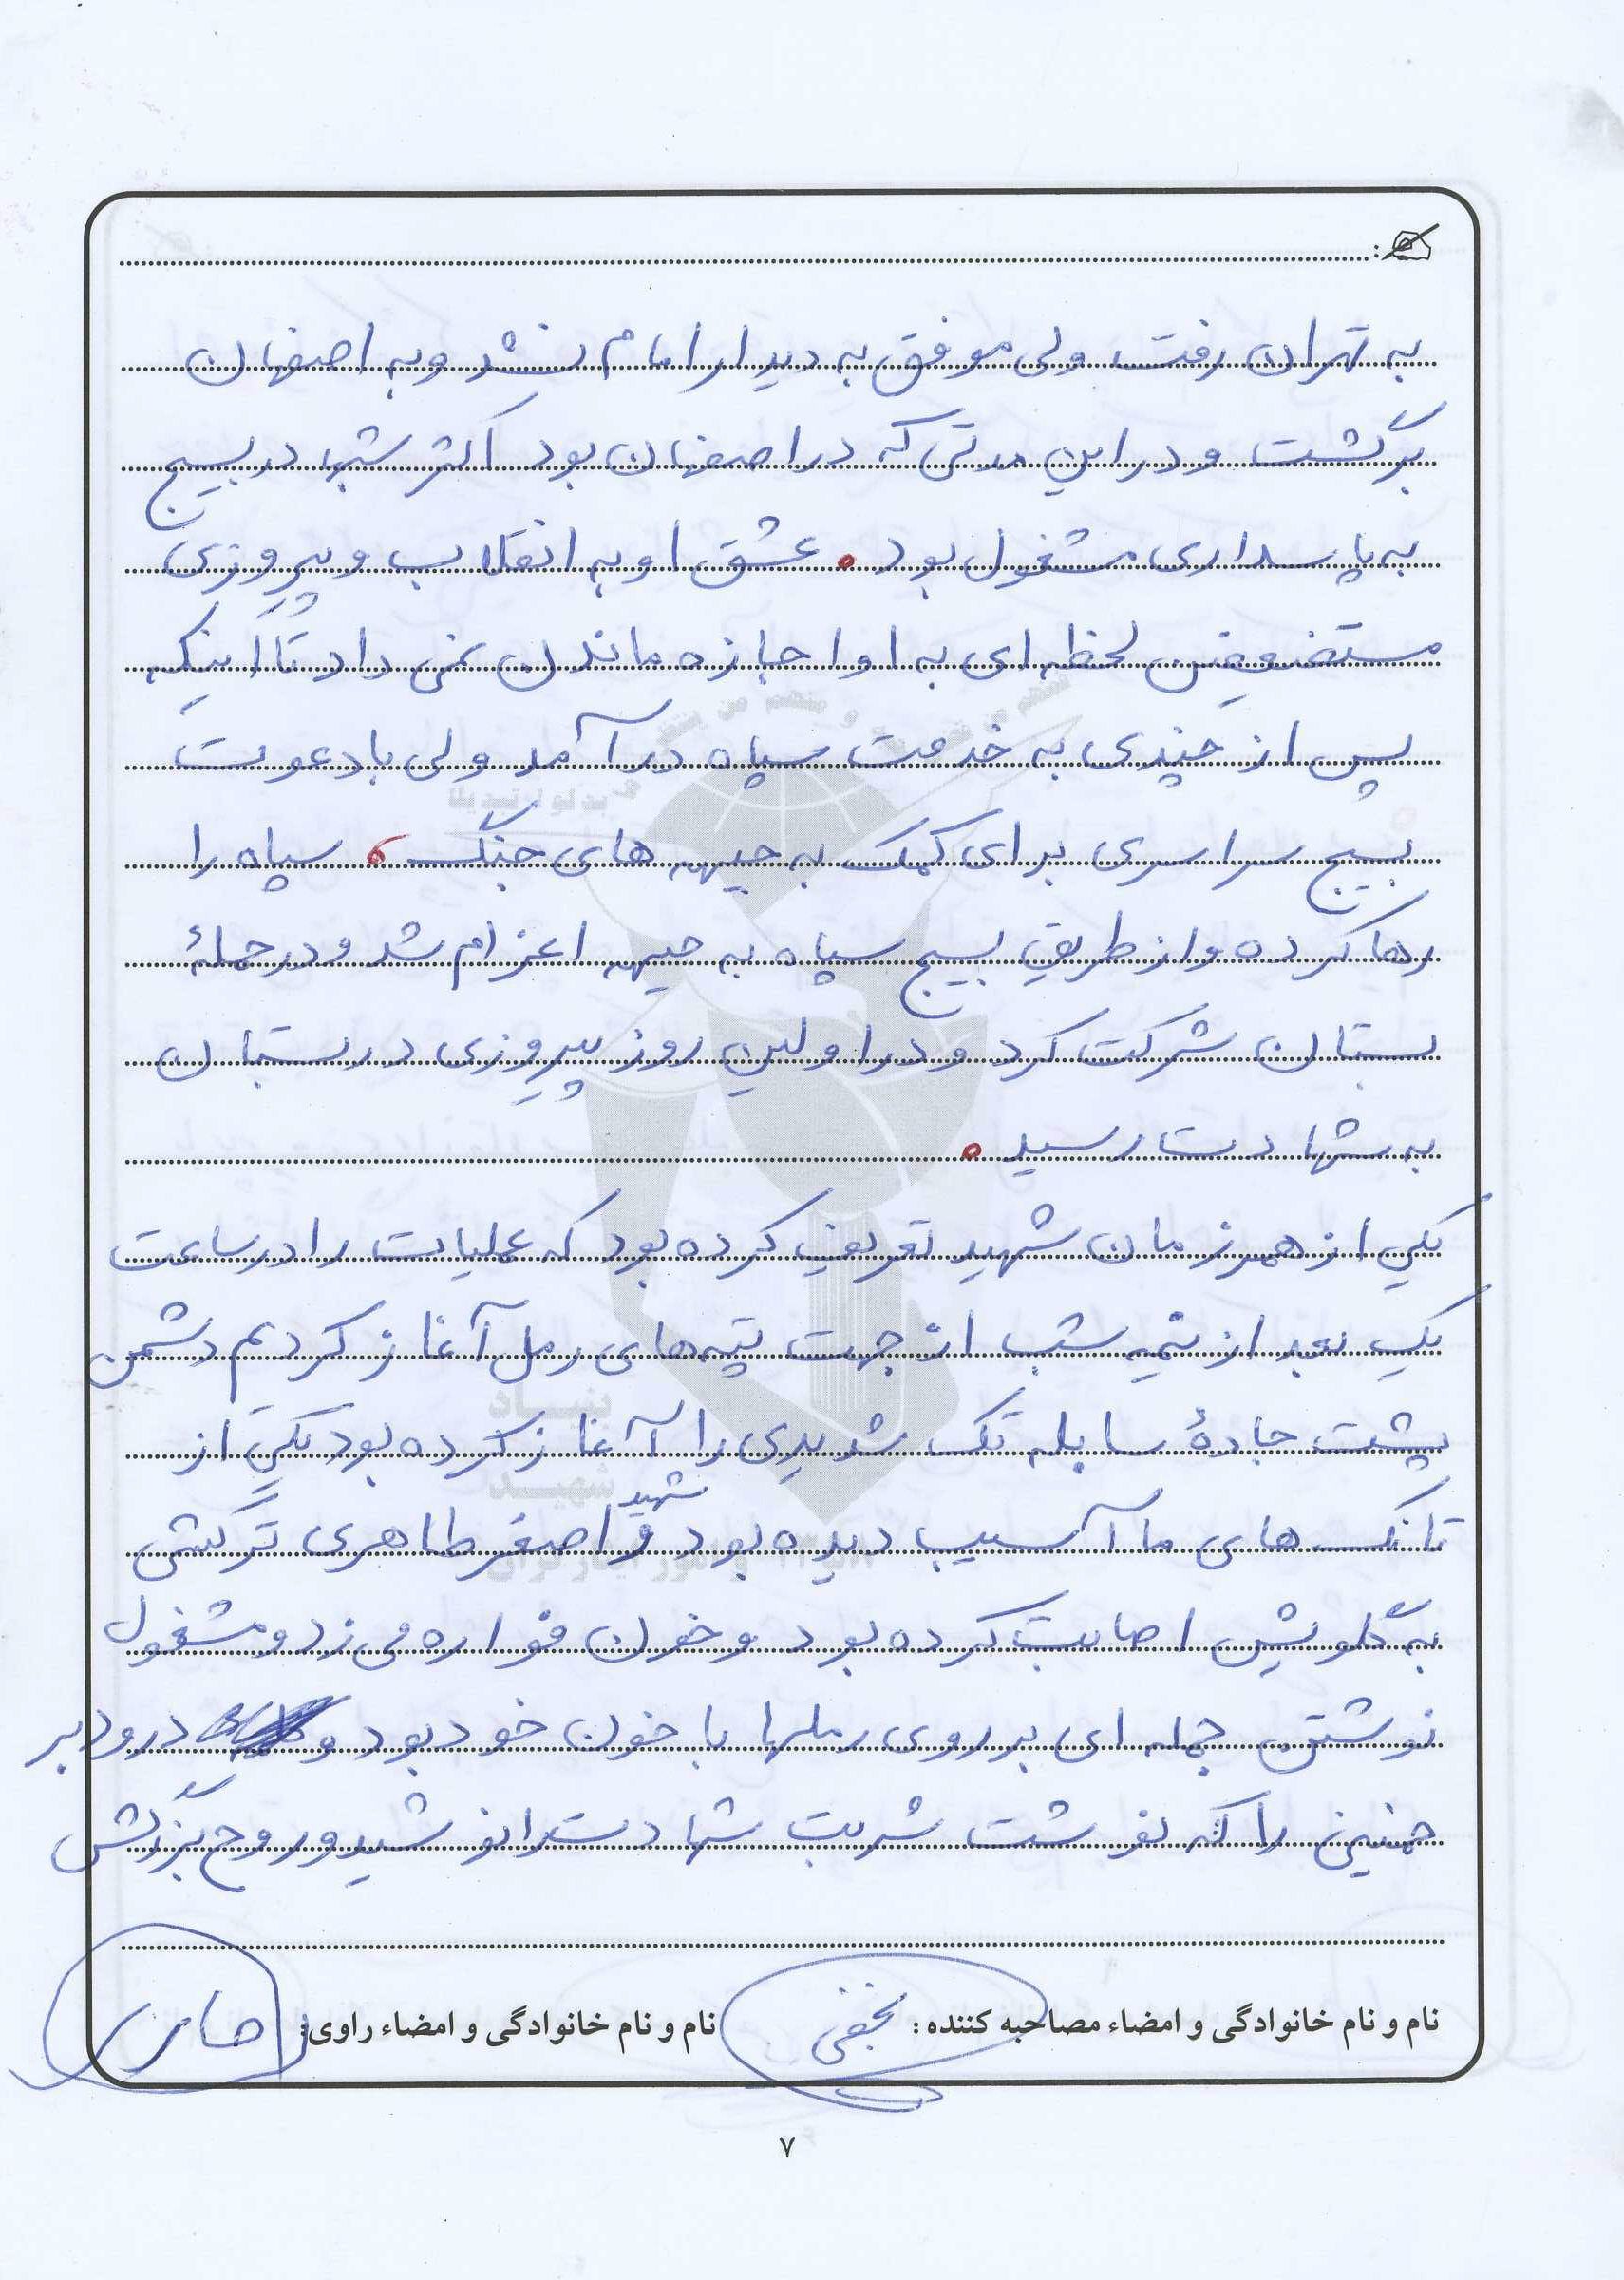 به تهران رفت ولی موفق به دیدار امام نشد و به اصفهان
برگشت و در این مدتی که در اصفهان بود اکثر شبها در بسیج
به پاسداری مشغول بود . عشق او به انقلاب و پیروزی
مستضعفین لحظه ای به او اجازه ماندن نمی داد تا اینکه
پس از چندی به خدمت سپاه در آمد ولی با دعوت
بسیج سراسری برای کمک به جبهه های جنگ ، سپاه را
رها کرده و از طریق بسیج سپاه به جبهه اعزام شد و در حملهٔ
بستان شرکت کرد و در اولین روز پیروزی در بستان
به شهادت رسید .
یکی از همرزمان شهید تعریف کرده بود که عملیات را در ساعت
یک بعد از نیمه شب از جهت تپه های رمل آغاز کردیم دشمن
پشت جادهٔ سابله تک شدیدی را آغاز کرده بود یکی از
تانک های ما آسیب دیده بود و شهید اصغر طاهری ترکشی
به گلویش اصابت کرده بود و خون فواره می زد و مشغول
نوشتن جمله ای بر روی رملها با خون خود بود و درود بر
خمینی را که نوشت شربت شهادت را نوشید و روح بزرگش
نام و نام خانوادگی و امضاء مصاحبه کننده : نجفی
نام و نام خانوادگی و امضاء راوی:
۷